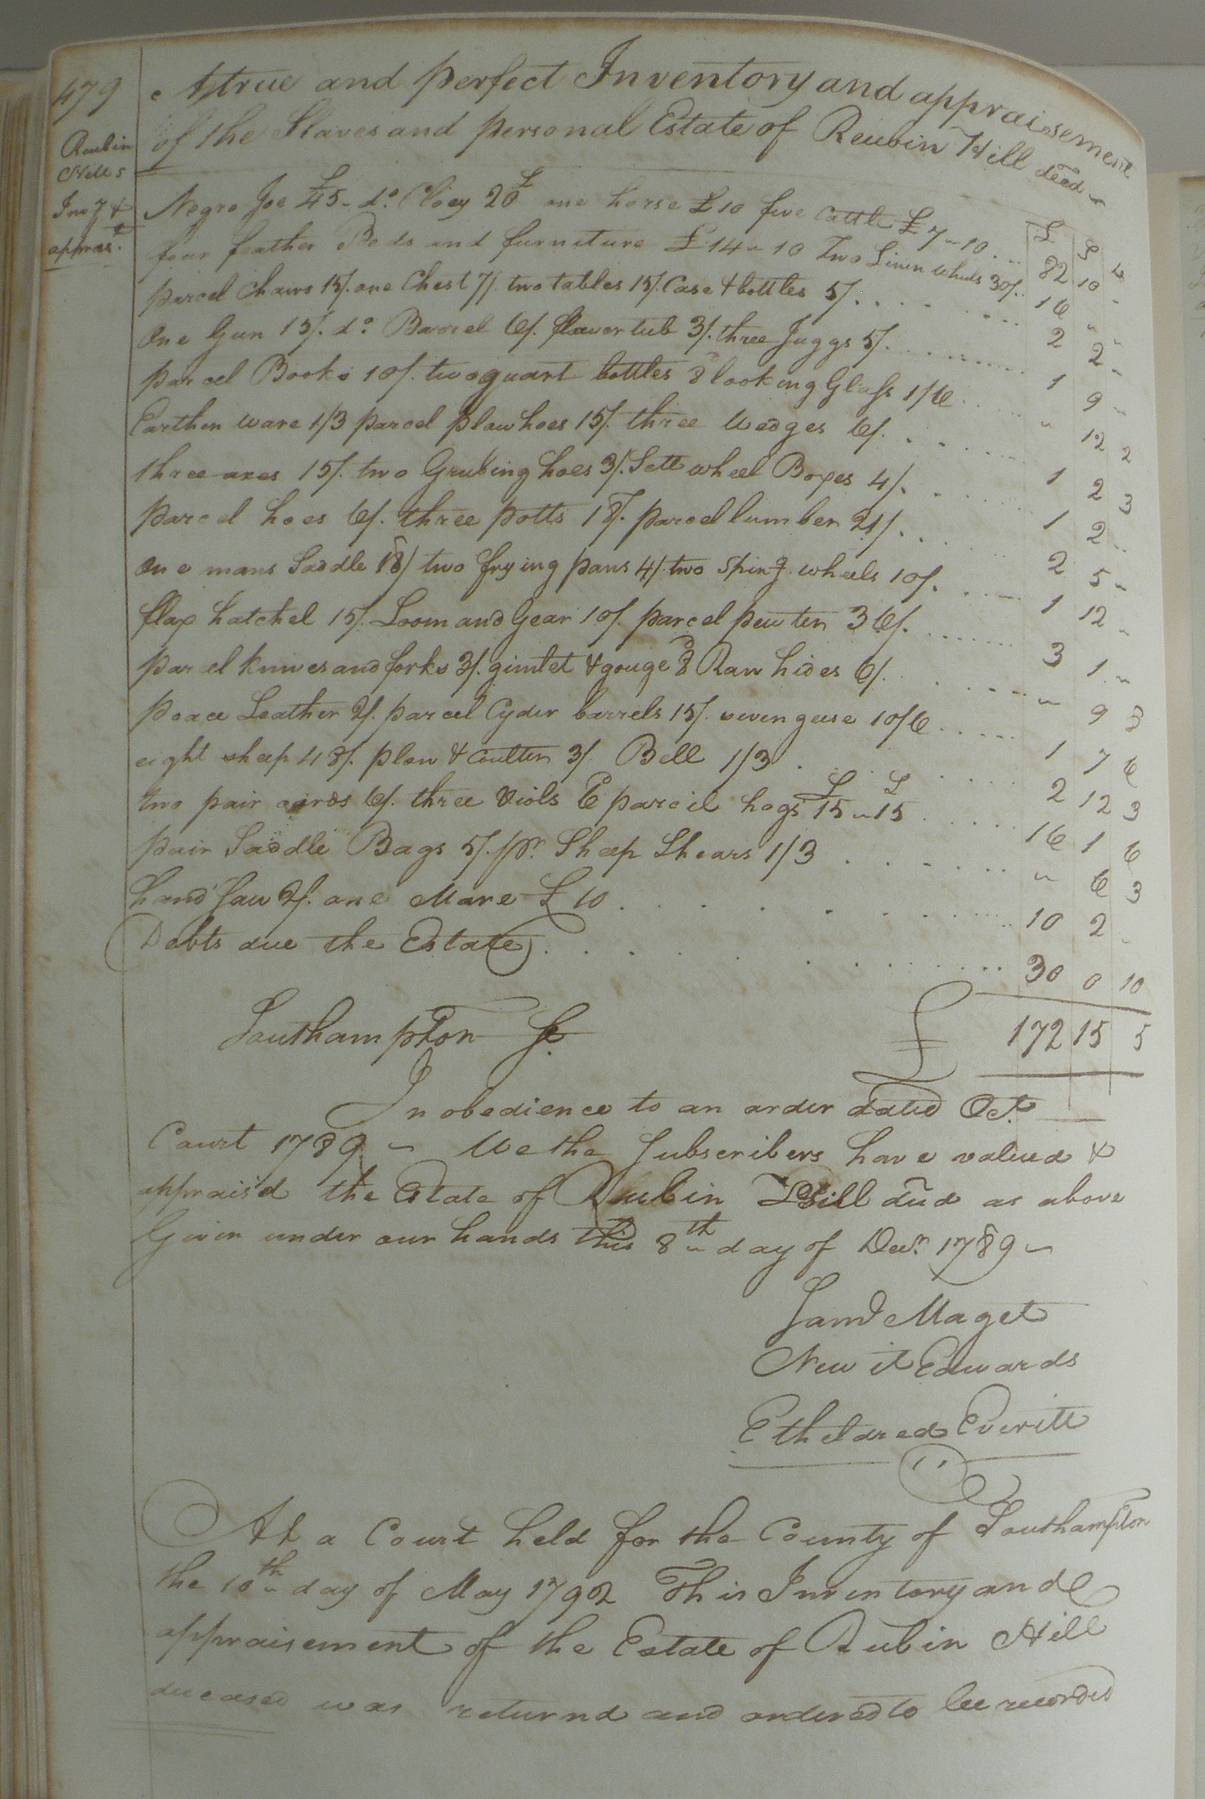 479
Reubin
Hills
Inv.y &
apprast.
A true and perfect Inventory and appraisement
of the Slaves and personal Estate of Reubin Hill deed
Negro Joe £45 - do. Cloey 20£ one horse £10 five Cattle £7 " 10 ... 82 10 -
£ S d
four feather Beds and furniture £14 " 10 Two Linen wheels 30/. 16 " "
parcel Chairs 15/. one Chest 7/. two tables 15/. Case & bottles 5/. 2 2 -
One Gun 15/. do. Barrel 6/. flower tub 3/. three Juggs 5/. 1 9 "
parcel Books 10/. two quart bottles 8 looking Glass 1/6 " 12 2
Earthen ware 1/3 parcel plow hoes 15/. three Wedges 6/. 1 2 3
three axes 15/. two Grubing hoes 3/. Sett wheel Boxes 4/. 1 2 "
parcel hoes 6/. three potts 18/. parcel lumber 21/. 2 5 -
One mans Saddle 18/ two frying pans 4/. two Sping. wheels 10/. 1 12 "
flax hatchel 15/. Loom and Gear 10/. parcel pewter 36/. 3 1 "
parcel knives and forks 3/. gimlet & gouge 8 Raw hides 6/. " 9 8
peace Leather 2/. parcel Cyder barrels 15/. seven geese 10/6 1 7 6
eight sheep 48/. plow & Coulter 3/. Bell 1/3 2 12 3
two pair cards 6/. three Viols 6 parcel hogs £15 " £15 16 1 6
pair Saddle Bags 5/. pr. Sheep Shears 1/3 " 6 3
hand Saw 2/. one Mare £10 10 2 "
Debts due the Estate 30 0 10
Southampton Sc. £ 172 15 5
In obedience to an order dated Oct.
Court 1789 - We the Subscribers have valued &
apprais'd the Estate of Reubin Hill dec'd as above
Given under our hands this 8th day of Decr. 1789 -
Saml Maget
Newit Edwards
Etheldred Everitt
At a Court held for the County of Southampton
the 10th day of May 1792 This Inventory and
appraisement of the Estate of Rubin Hill
deceased was returnd and ordered to be recorded